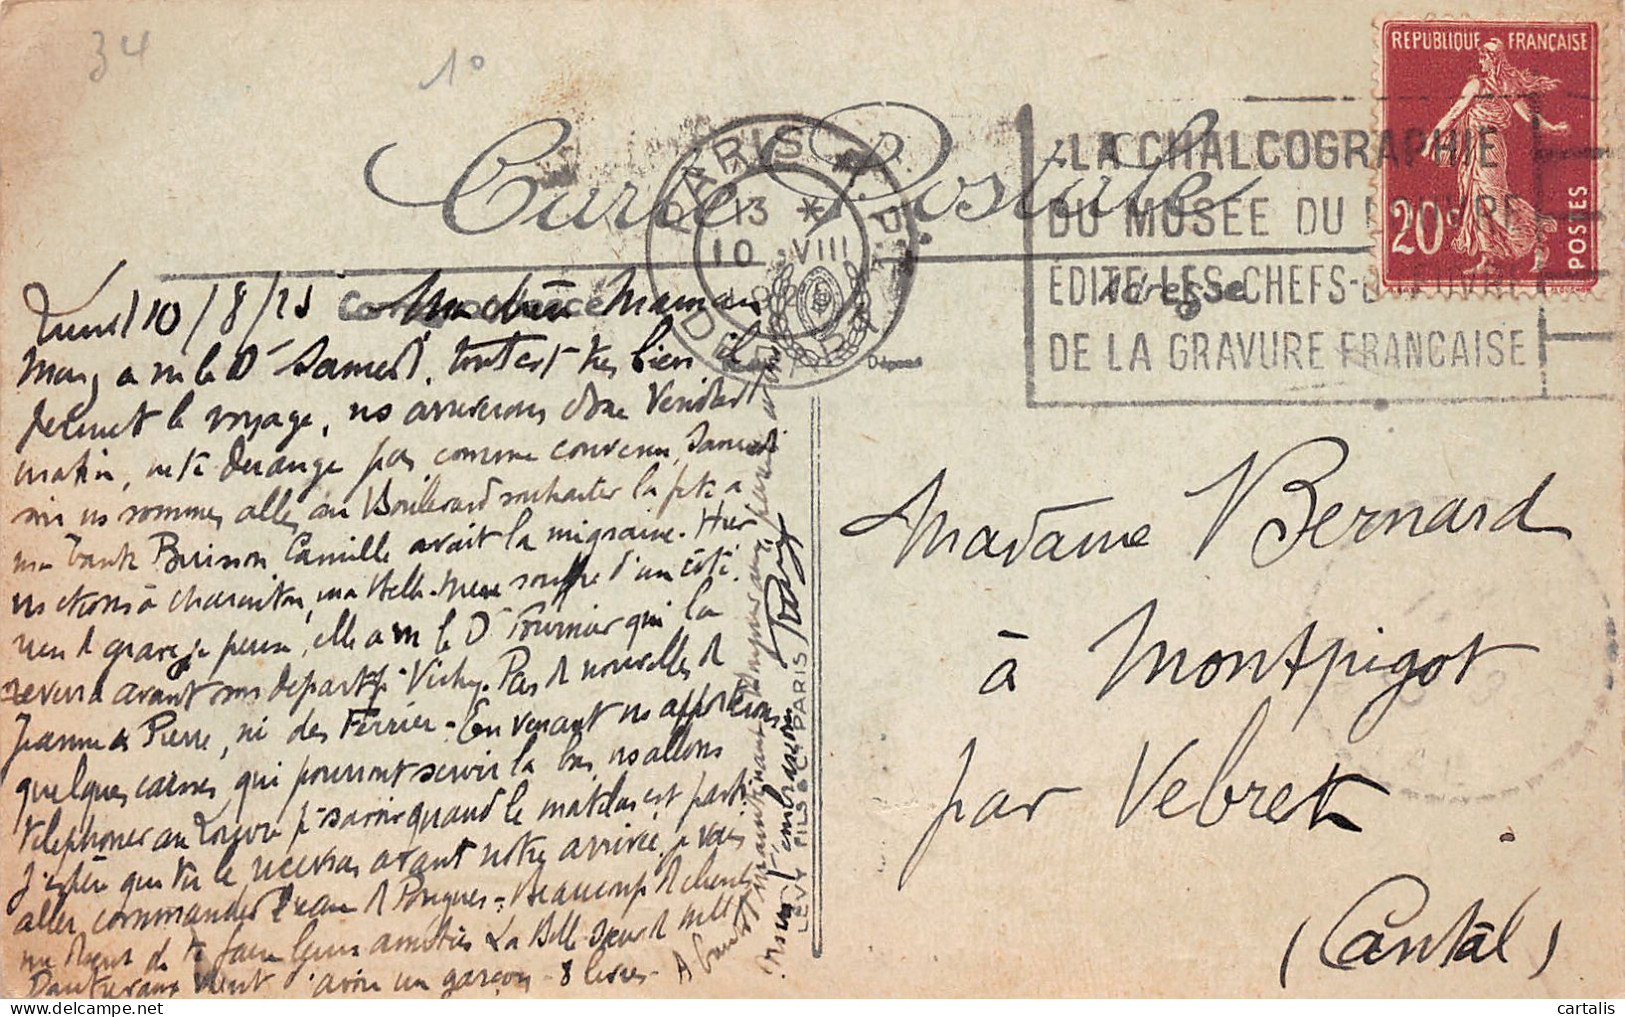 34
1°
Carte Postale
Correspondance
Adresse
REPUBLIQUE FRANÇAISE
20c
POSTES
PARIS
13 *
10 VIII
DEPART
Départ
LA CHALCOGRAPHIE
DU MUSÉE DU LOUVRE
ÉDITE LES CHEFS-D'ŒUVRE
DE LA GRAVURE FRANCAISE
Lundi 10/8/25 Ma chère Maman
a vu le Dr Samedi, tout est très bien il
permet le voyage, ns arriverons donc Vendredi
matin, ne te derange pas comme convenu, Samedi
soir ns sommes allés au Boulevard souhaiter la fête a
ma tante Buisson Camille avait la migraine. Hier
ns étions à Charenton, ma Belle-Mère souffre d'un côté.
rien d grave je pense, elle a vu le Dr Fournier qui la
reverra avant son départ pr Vichy. Pas d nouvelles d
Jeanne & Pierre, ni des Ferrier - En venant ns apporterons
quelques caisses, qui pourront servir la bas, ns allons
telephoner au Louvre pr savoir quand le matelas est parti
J'espère que tu le recevras avant notre arrivée, je vais
aller commander l'eau d Pougues - Beaucoup d clients
me disent de te faire leurs amitiés La Belle Sœur d Melle
vient d'avoir un garçon - 8 livres - A
LEVY FILS & Cie PARIS
Madame Bernard
à Montpigot
par Vebret
(Cantal)
cartalis